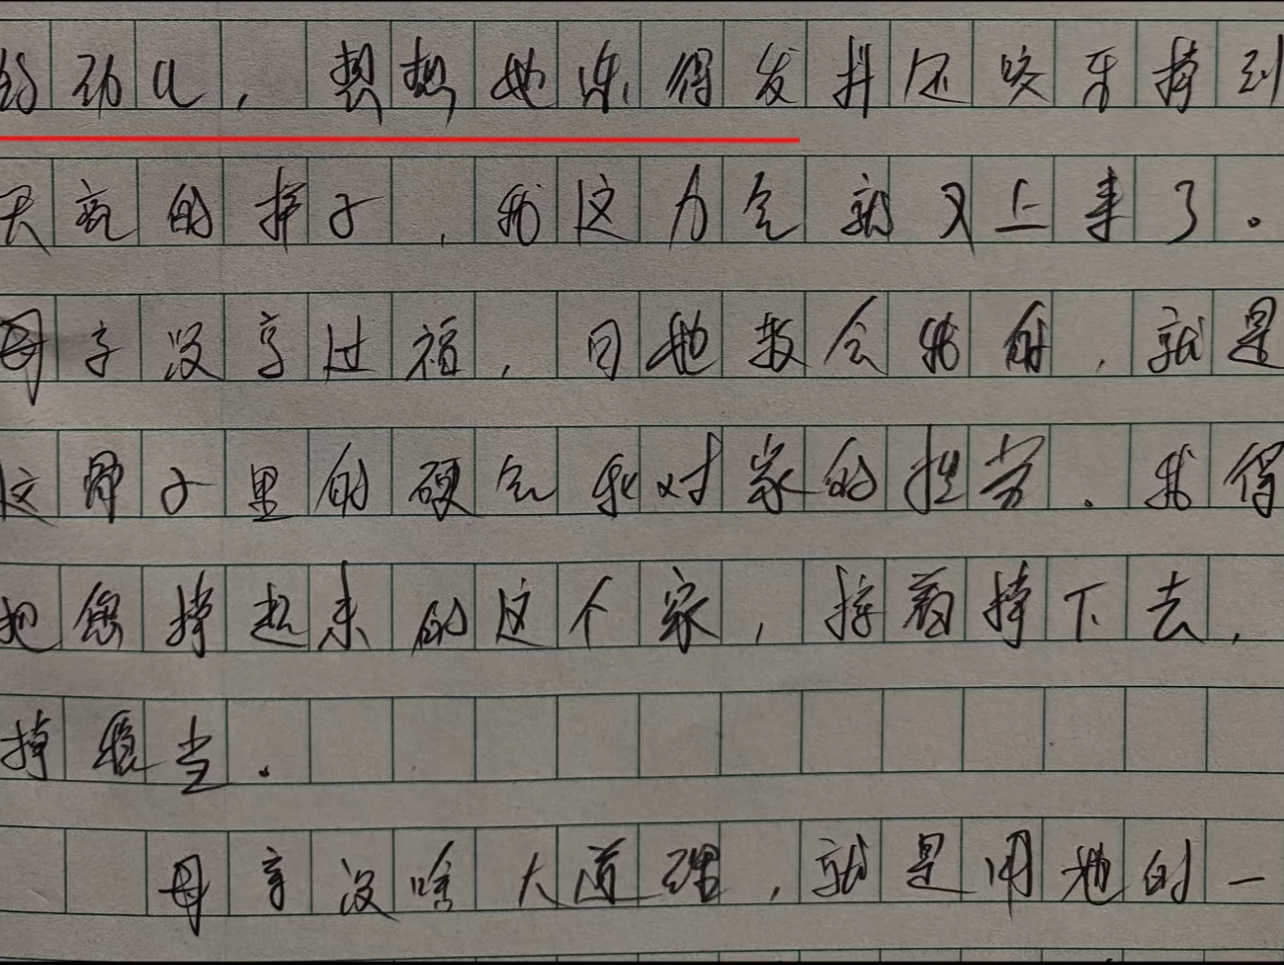 动儿，想想她冻得发抖还咬牙撑到
天亮的样子，我这力气就又上来了。
母亲没享过福，可她教会我的，就是
这骨子里的硬气和对家的担当。我得
把您撑起来的这个家，接着撑下去，
撑稳当。
母亲没啥大道理，就是用她的一